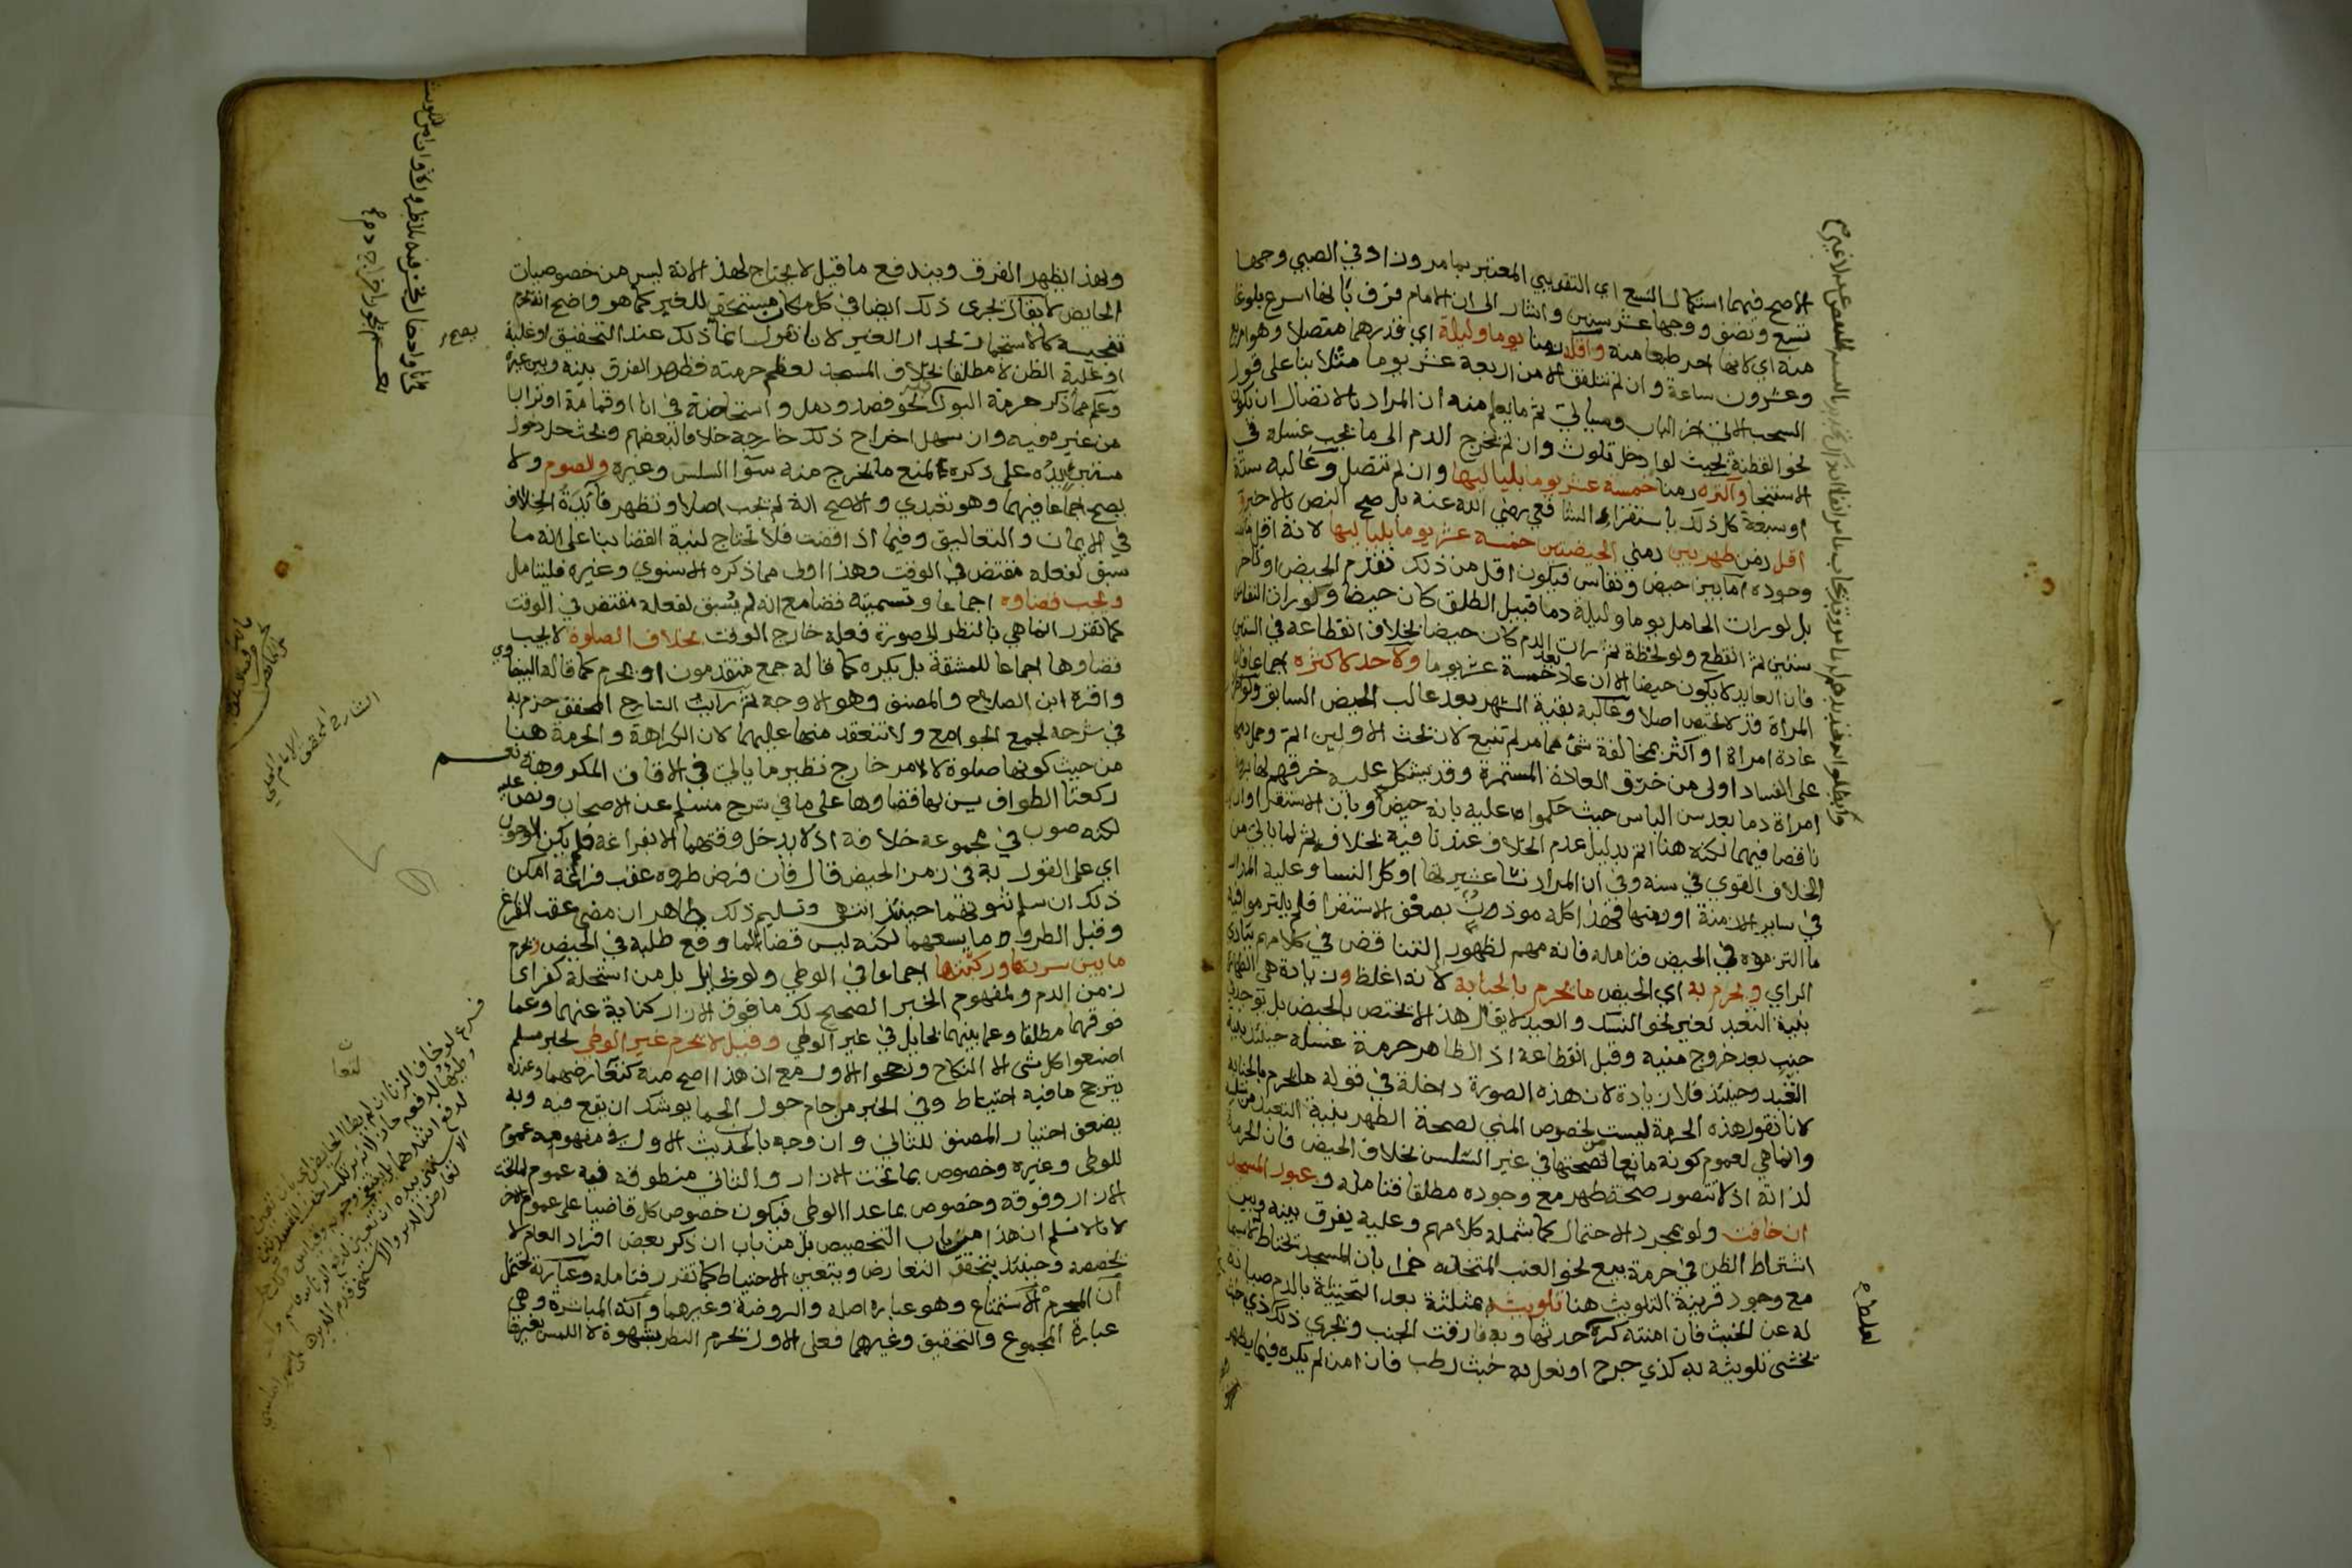 الاصح فيهما استكمال التسع اي التقريبي المعتبر بما مر وزاد في الصبي وجها
تسع ونصف ووجها عشر سنين واشار الى ان الامام فرق بانها اسرع بلوغا
منه اي لانها احر طبعا منه واقله زمنا يوما وليلة اي قدرهما متصلا وهو اربع
وعشرون ساعة وان لم تتلفق الا من اربعة عشر يوما مثلا بنا على قول
السحب الاتي اخر الباب وسياتي ثم ما يعلم منه ان المراد بالاتصال ان يكون
نحو القطنة بحيث لو ادخل تلوث وان لم يخرج الدم الى ما يجب غسله في
الاستنجا واكثره زمنا خمسة عشر يوما بلياليها وان لم تتصل وغالبه ستة
او سبعة كل ذلك باستقراء الشافعي رضي الله عنه بل صح النص بالاخيرة
اقل زمن طهر بين زمني الحيضتين خمسة عشر يوما بلياليها لانه اقل ما ثبت
وجوده اما بين حيض ونفاس فيكون اقل من ذلك تقدم الحيض او تاخر
بل لو رات الحامل يوما وليلة دما قبيل الطلق كان حيضا ولو رات النفاس
ستين ثم انقطع ولو لحظة ثم رات الدم كان حيضا بخلاف انقطاعه في الستين
فان العايد لا يكون حيضا الا ان عاد بعد خمسة عشر يوما ولا حد لاكثره اجماعا فان
المراة قد لا تحيض اصلا وغالبه بقية الشهر بعد غالب الحيض السابق ولو اطردت
عادة امراة او اكثر بمخالفة شئ مما مر لم تتبع لان بحث الاولين اتم وحمل دمها
على الفساد اولى من خرق العادة المستمرة وقد يشكل عليه خرقهم لها برؤية
امراة دما بعد سن الياس حيث حكموا عليه بانه حيض وبان الاستقرا وان كان
ناقصا فيهما لكنه هنا اتم بدليل عدم الخلاف عندنا فيه بخلافه ثم لما ياتي من
الخلاف القوي في سنه وفي ان المراد نسا عشيرتها او كل النسا وعليه المراد
في ساير الازمنة او زمنها فهذا كله موذن بضعف الاستقرا فلم يلتزموا فيه
ما التزموه في الحيض فتامله فانه مهم لظهور التناقض في كلامهم ببادي
الراي ويحرم به اي الحيض ما يحرم بالجنابة لانه اغلظ وزيادة هي الطهارة
بنية التعبد لغير نحو النسك والعيد لا يقال هذا لا يختص بالحيض بل يوجد في
جنب بعد خروج منيه وقبل انقطاعه اذ الظاهر حرمة غسله حينئذ بنية
التعبد وحينئذ فلا زيادة لان هذه الصورة داخلة في قوله ما يحرم بالجنابة
لانا نقول هذه الحرمة ليست لخصوص المني لصحة الطهر بنية التعبد من سلسه
وانما هي لعموم كونه مانعا من صحتها في غير السلس بخلاف الحيض فان الحرمة
لذاته اذ لا تتصور صحة طهر مع وجوده مطلقا فتامله وعبور المسجد
ان خافت ولو بمجرد الاحتمال كما شمله كلامهم وعليه يفرق بينه وبين
اشتراط الظن في حرمة بيع نحو العنب لمتخذه خمرا بان المسجد يحتاط له لاسيما
مع وجود قرينة التلويث هنا تلويثه بمثلثة بعد التحتية بالدم صيانة
له عن الخبث فان امنته كره لحدثها وبه فارقت الجنب ويجري ذلك في كل ذي خبث
يخشى تلويثه به كذي جرح او نعل به خبث رطب فان امن لم يكره فيما يظهر
وبهذا يظهر الفرق ويندفع ما قيل لا يحتاج لهذا لانه ليس من خصوصيات
الحايض لا يقال يجري ذلك ايضا في كل مكان مستحق للغير كما هو واضح اذ يحرم
تنجيسه كالاستجمار بجدار الغير لانا نقول انما ذلك عند التحقيق او غلبة
او غلبة الظن لا مطلقا بخلاف المسجد لعظم حرمته فظهر الفرق بينه وبين غيره
وعلم مما ذكر حرمة البول فيه نحو فصد ودمل واستحاضة في انا او قمامة او تراب
من غير فيه وان سهل اخراج ذلك خارجه خلافا لبعضهم وبحث حل دخول
مستبرئ يده على ذكره لمنع ما يخرج منه سوا السلس وغيره والصوم ولا
يصح اجماعا فيهما وهو تعبدي والاصح انه لم يجب اصلا وتظهر فايدة الخلاف
في الايمان والتعاليق وفيما اذا قضت فلا تحتاج لنية القضا بنا على انه ما
سبق لفعله مقتض في الوقت وهذا اولى مما ذكره الاسنوي وغيره فليتامل
ويجب قضاوه اجماعا وتسميته قضا مع انه لم يسبق لفعله مقتض في الوقت
كما تقرر انما هي بالنظر الى صورة فعله خارج الوقت بخلاف الصلوة لا يجب
قضاوها اجماعا للمشقة بل يكره كما قاله جمع متقدمون او يحرم كما قاله البيضاوي
واقره ابن الصلاح والمصنف وهو الاوجه ثم رايت الشارح المحقق جزم به
في شرحه لجمع الجوامع ولا تنعقد منها عليهما لان الكراهة والحرمة هنا
من حيث كونها صلوة لا لامر خارج نظير ما ياتي في الاوقات المكروهة نعم
ركعتا الطواف يسن لها قضاوها على ما في شرح مسلم عن الاصحاب ونص عليه
لكنه صوب في مجموعه خلافه اذ لا يدخل وقتهما الا بفراغه فلم يكن الوجوب
اي على القول به في زمن الحيض قال فان فرض طروه عقب فراغه امكن
ذلك ان سلم ثبوتهما حينئذ انتهى وتسليم ذلك ظاهر ان مضى عقب الفراغ
وقبل الطرو ما يسعهما لكنه ليس قضا لما وقع طلبه في الحيض ويحرم
ما بين سرتها وركبتها اجماعا في الوطي ولو بحايل بل من استحله كفر اي
زمن الدم ولمفهوم الخبر الصحيح لك ما فوق الازار كناية عنهما وعما
فوقهما مطلقا وعما بينهما بحايل في غير الوطي وقيل لا يحرم غير الوطي لخبر مسلم
اصنعوا كل شئ الا النكاح ورجحوا الاول مع ان هذا اصح منه لتعارضهما وعنده
يترجح ما فيه احتياط وفي الخبر من حام حول الحمى يوشك ان يقع فيه وبه
يضعف اختيار المصنف للثاني وان وجه بالحديث الاول في مفهومه عموم
للوطي وغيره وخصوص بما تحت الازار والثاني منطوقه فيه عموم لما تحت
الازار وفوقه وخصوص بما عدا الوطي فيكون خصوص كل قاضيا على عموم الاخر
لانا لا نسلم ان هذا من باب التخصيص بل من باب ان ذكر بعض افراد العام لا
يخصصه وحينئذ يتحقق التعارض ويتعين الاحتياط كما تقرر فتامله وعبارته تحتمل
ان المحرم الاستمتاع وهو عبارة اصله والروضة وغيرهما وانه المباشرة وهي
عبارة المجموع والتحقيق وغيرهما فعلى الاول يحرم النظر بشهوة لا اللمس بغيرها
الشارح المحقق
الامام المحلي